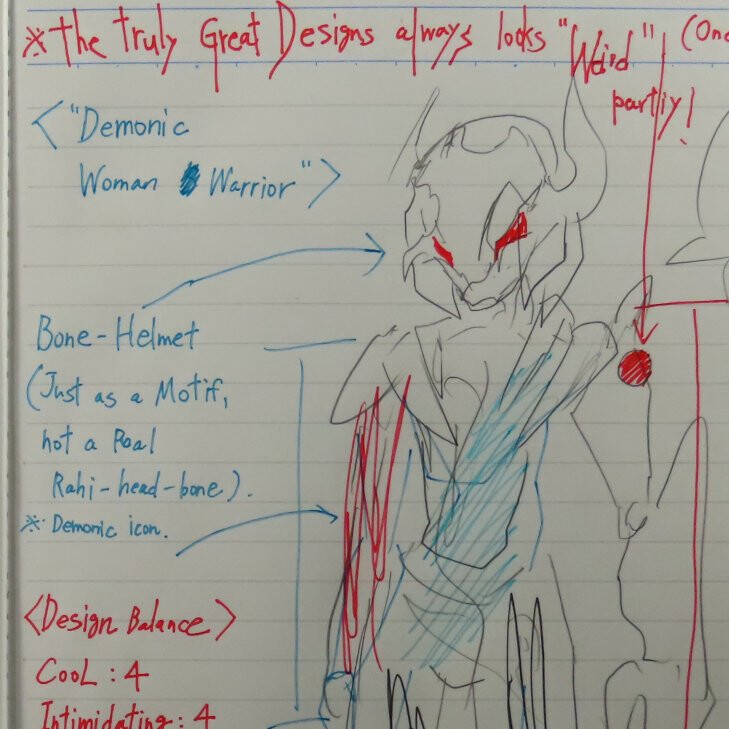 ※The Truly Great Designs always looks "Weird" (One
partly!
<"Demonic
Woman Warrior">
Bone-Helmet
(Just as a Motif,
not a Real
Rahi-head-bone).
※Demonic icon.
<Design Balance>
Cool : 4
Intimidating : 4